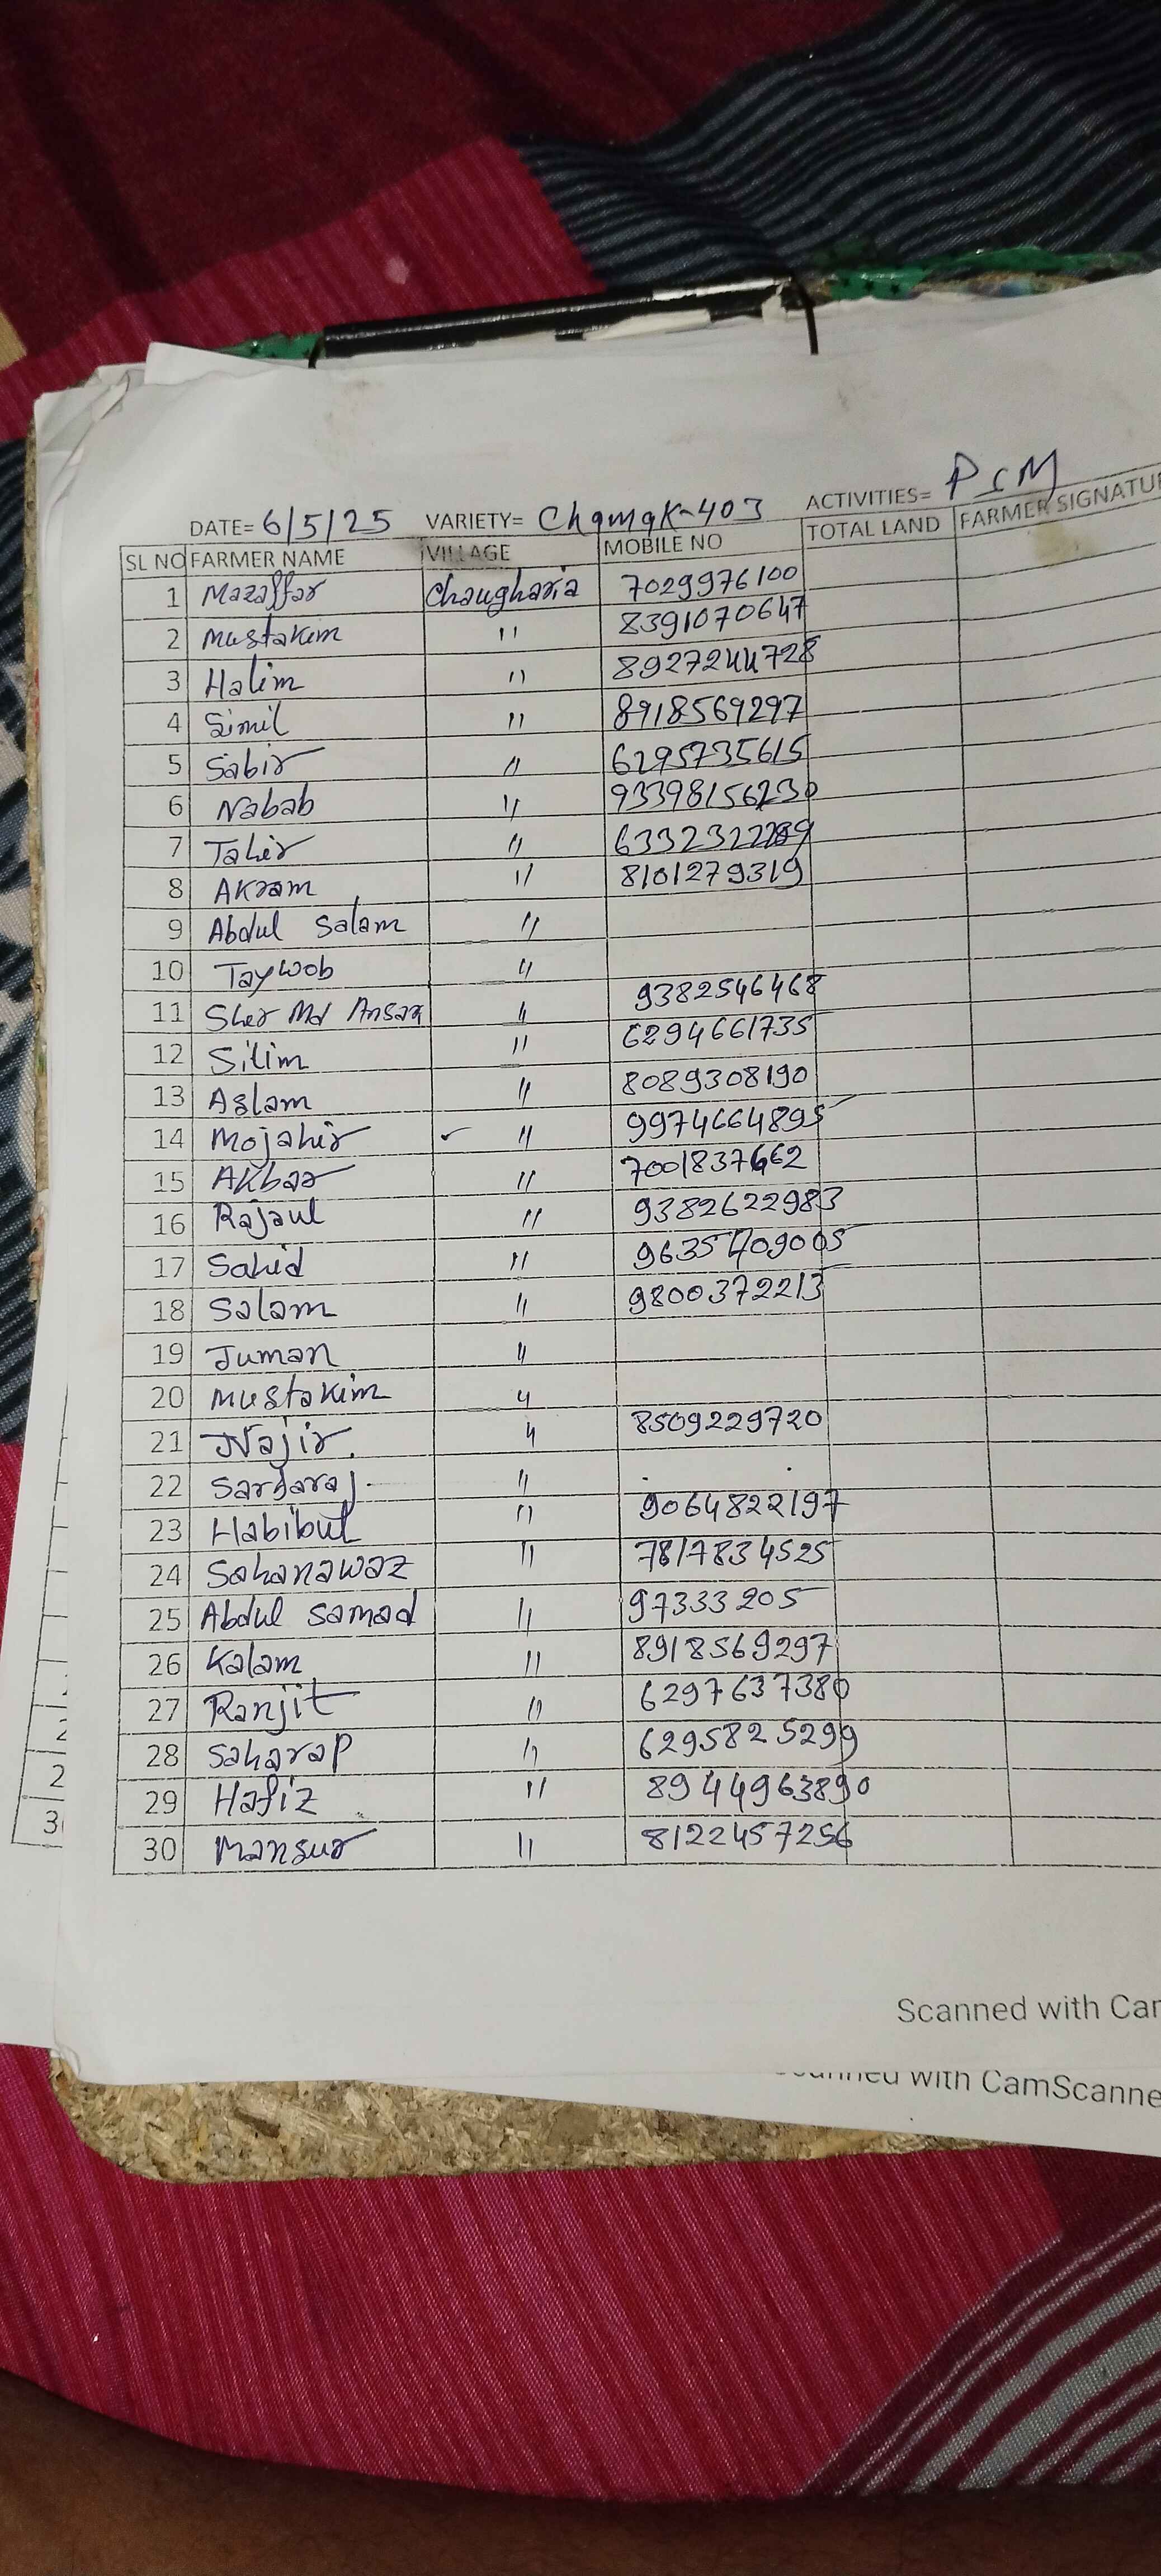 DATE= 6/5/25 VARIETY= Chamak-403 ACTIVITIES= PCM
SL NO FARMER NAME VILLAGE MOBILE NO TOTAL LAND FARMER SIGNATU
1 Mazaffar Chaugharia 7029976100
2 Mustakim " 8391070647
3 Halim " 8927244728
4 Simil " 8918569297
5 Sabir " 6295735615
6 Nabab " 93398156230
7 Tahir "
8 Akram " 8101279319
9 Abdul Salam "
10 Taywob "
11 Sher Md Ansar " 9382546468
12 Silim " 6294661735
13 Aslam " 8089308190
14 Mojahir ✓ " 9974664895
15 Akbar "
16 Rajaul " 9382622983
17 Sahid "
18 Salam " 9800372213
19 Juman "
20 Mustakim "
21 Najir. " 8509229720
22 Sarfaraj "
23 Habibul " 9064822197
24 Sahanawaz " 7817834525
25 Abdul Samad " 97333205
26 Kalam " 8918569297
27 Ranjit " 6297637380
28 Saharap " 6295825299
29 Hafiz " 8944963890
30 Mansur " 8122457256
2
2
3
Scanned with Car
with CamScanne